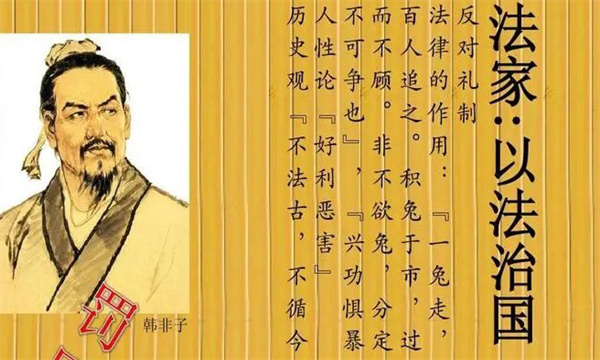 法家:以法治国
反对礼制
法律的作用:『一兔走,
百人追之。积兔于市,过
而不顾。非不欲兔,分定
不可争也』,『兴功惧暴
人性论『好利恶害』
历史观『不法古,不循今
韩非子
罚